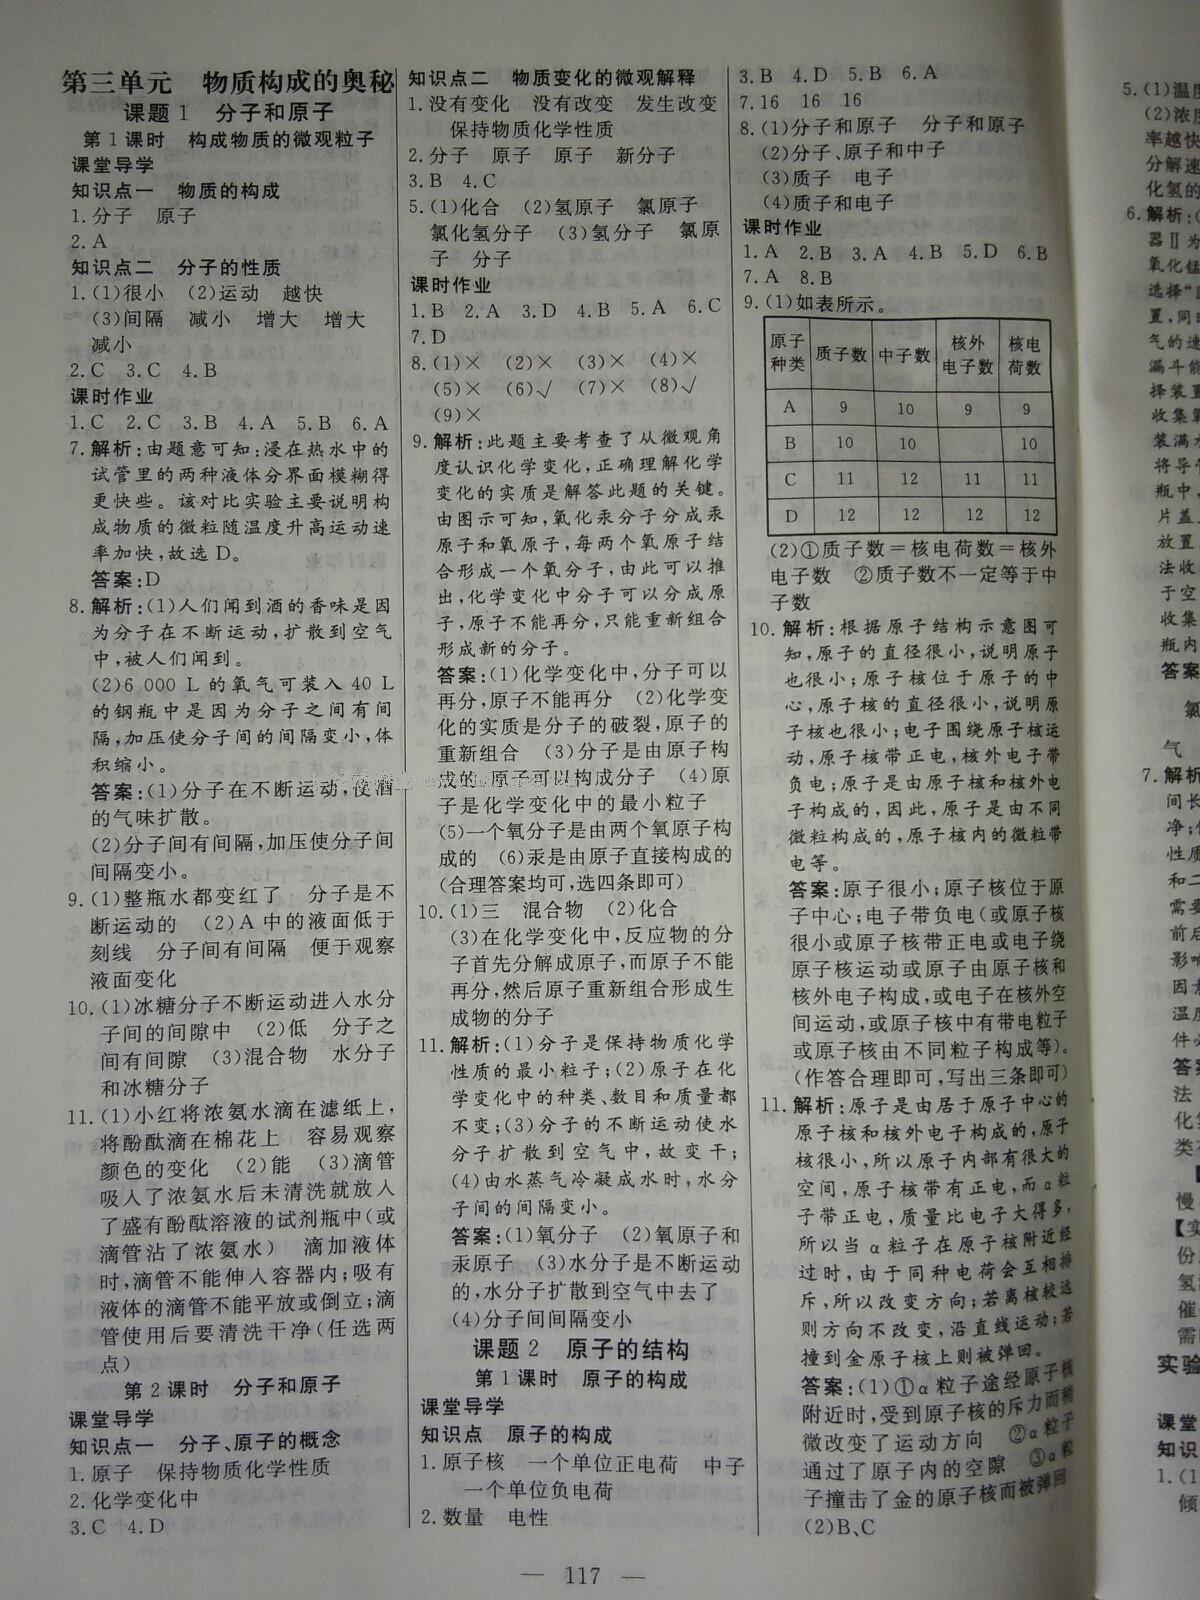 第三单元　物质构成的奥秘
课题1　分子和原子
第1课时　构成物质的微观粒子
课堂导学
知识点一　物质的构成
1.分子　原子
2.A
知识点二　分子的性质
1.(1)很小　(2)运动　越快
(3)间隔　减小　增大　增大
减小
2.C　3.C　4.B
课时作业
1.C　2.C　3.B　4.A　5.B　6.A
7.解析:由题意可知:浸在热水中的
试管里的两种液体分界面模糊得
更快些。该对比实验主要说明构
成物质的微粒随温度升高运动速
率加快,故选D。
答案:D
8.解析:(1)人们闻到酒的香味是因
为分子在不断运动,扩散到空气
中,被人们闻到。
(2)6 000 L的氧气可装入40 L
的钢瓶中是因为分子之间有间
隔,加压使分子间的间隔变小,体
积缩小。
答案:(1)分子在不断运动,使酒
的气味扩散。
(2)分子间有间隔,加压使分子间
间隔变小。
9.(1)整瓶水都变红了　分子是不
断运动的　(2)A中的液面低于
刻线　分子间有间隔　便于观察
液面变化
10.(1)冰糖分子不断运动进入水分
子间的间隙中　(2)低　分子之
间有间隙　(3)混合物　水分子
和冰糖分子
11.(1)小红将浓氨水滴在滤纸上,
将酚酞滴在棉花上　容易观察
颜色的变化　(2)能　(3)滴管
吸入了浓氨水后未清洗就放入
了盛有酚酞溶液的试剂瓶中(或
滴管沾了浓氨水)　滴加液体
时,滴管不能伸入容器内;吸有
液体的滴管不能平放或倒立;滴
管使用后要清洗干净(任选两
点)
第2课时　分子和原子
课堂导学
知识点一　分子、原子的概念
1.原子　保持物质化学性质
2.化学变化中
3.C　4.D
知识点二　物质变化的微观解释
1.没有变化　没有改变　发生改变
保持物质化学性质
2.分子　原子　原子　新分子
3.B　4.C
5.(1)化合　(2)氢原子　氯原子
氯化氢分子　(3)氢分子　氯原
子　分子
课时作业
1.B　2.A　3.D　4.B　5.A　6.C
7.D
8.(1)×　(2)×　(3)×　(4)×
(5)×　(6)√　(7)×　(8)√
(9)×
9.解析:此题主要考查了从微观角
度认识化学变化,正确理解化学
变化的实质是解答此题的关键。
由图示可知,氧化汞分子分成汞
原子和氧原子,每两个氧原子结
合形成一个氧分子,由此可以推
出,化学变化中分子可以分成原
子,原子不能再分,只能重新组合
形成新的分子。
答案:(1)化学变化中,分子可以
再分,原子不能再分　(2)化学变
化的实质是分子的破裂,原子的
重新组合　(3)分子是由原子构
成的,原子可以构成分子　(4)原
子是化学变化中的最小粒子
(5)一个氧分子是由两个氧原子构
成的　(6)汞是由原子直接构成的
(合理答案均可,选四条即可)
10.(1)三　混合物　(2)化合
(3)在化学变化中,反应物的分
子首先分解成原子,而原子不能
再分,然后原子重新组合形成生
成物的分子
11.解析:(1)分子是保持物质化学
性质的最小粒子;(2)原子在化
学变化中的种类、数目和质量都
不变;(3)分子的不断运动使水
分子扩散到空气中,故变干;
(4)由水蒸气冷凝成水时,水分
子间的间隔变小。
答案:(1)氧分子　(2)氧原子和
汞原子　(3)水分子是不断运动
的,水分子扩散到空气中去了
(4)分子间间隔变小
课题2　原子的结构
第1课时　原子的构成
课堂导学
知识点　原子的构成
1.原子核　一个单位正电荷　中子
一个单位负电荷
2.数量　电性
3.B　4.D　5.B　6.A
7.16　16　16
8.(1)分子和原子　分子和原子
(2)分子、原子和中子
(3)质子　电子
(4)质子和电子
课时作业
1.A　2.B　3.A　4.B　5.D　6.B
7.A　8.B
9.(1)如表所示。
原子种类　质子数　中子数　核外电子数　核电荷数
A　9　10　9　9
B　10　10　　10
C　11　12　11　11
D　12　12　12　12
(2)①质子数=核电荷数=核外
电子数　②质子数不一定等于中
子数
10.解析:根据原子结构示意图可
知,原子的直径很小,说明原子
也很小;原子核位于原子的中
心,原子核的直径很小,说明原
子核也很小;电子围绕原子核运
动,原子核带正电,核外电子带
负电;原子是由原子核和核外电
子构成的,因此,原子是由不同
微粒构成的,原子核内的微粒带
电等。
答案:原子很小;原子核位于原
子中心;电子带负电(或原子核
很小或原子核带正电或电子绕
原子核运动或原子由原子核和
核外电子构成,或电子在核外空
间运动,或原子核中有带电粒子
或原子核由不同粒子构成等)。
(作答合理即可,写出三条即可)
11.解析:原子是由居于原子中心的
原子核和核外电子构成的,原子
核很小,所以原子内部有很大的
空间,原子核带有正电,而α粒
子带正电,质量比电子大得多,
所以当α粒子在原子核附近经
过时,由于同种电荷会互相排
斥,所以改变方向;若离核较远
则方向不改变,沿直线运动;若
撞到金原子核上则被弹回。
答案:(1)①α粒子途经原子核
附近时,受到原子核的斥力而稍
微改变了运动方向　②α粒子
通过了原子内的空隙　③α粒
子撞击了金的原子核而被弹回
(2)B、C
117
5.(1)温度
(2)浓度
率越快
分解速
化氢的
6.解析:(
器Ⅱ为
氧化锰
选择“
置,同
气的速
漏斗能
择装置
收集氧
装满水
将导管
瓶中,
片盖
放置
法收
于空
收集
瓶内
答案
氯
气
7.解析
间长
净;
性质
和二
需要
前后
影响
因素
温度
件必
答案
法
化学
类
慢
【实
份
氢
催
需
实验
课堂
知识
1.(1
倾